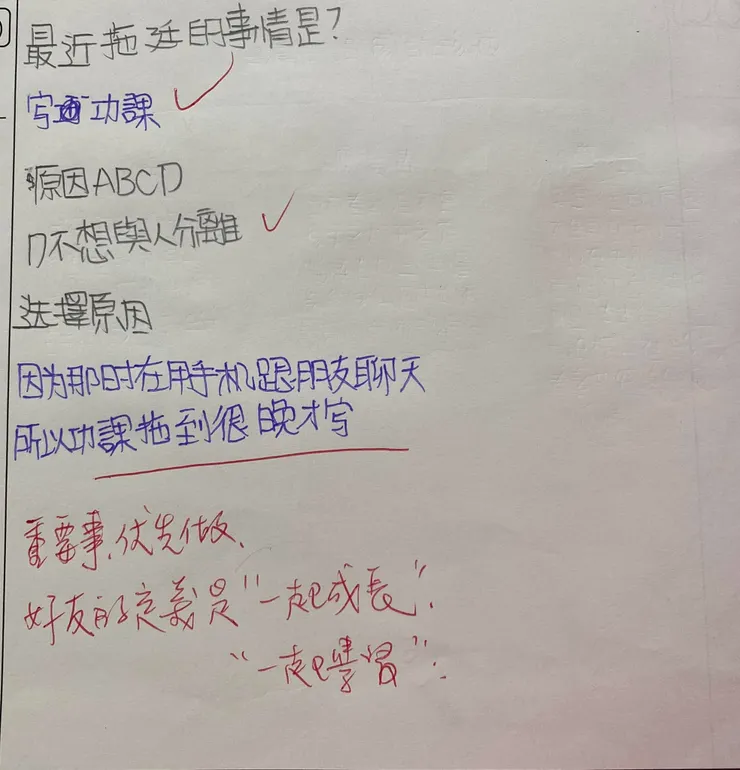 最近拖延的事情是？
写功課
原因ABCD
D不想與人分離
选擇原因
因为那时在用手机跟朋友聊天
所以功課拖到很晚才写
重要事,优先做,
好友的定義是"一起成長".
"一起學習".